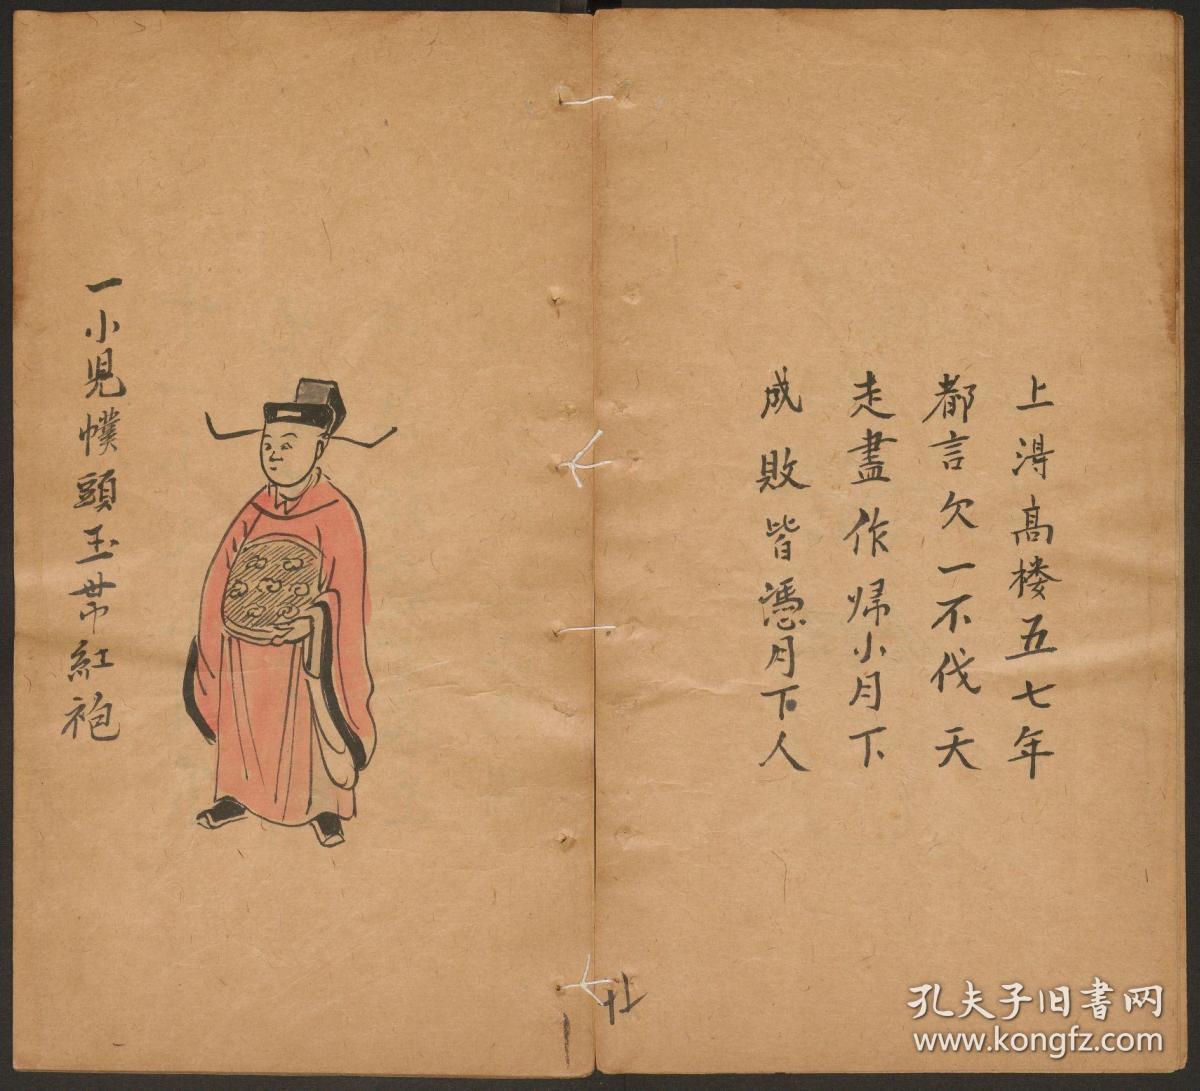 上得高楼五七年
都言欠一不伐天
走盡作归小月下
成敗皆憑月下人
一小児幞頭玉帯紅袍
孔夫子旧书网
www.kongfz.com